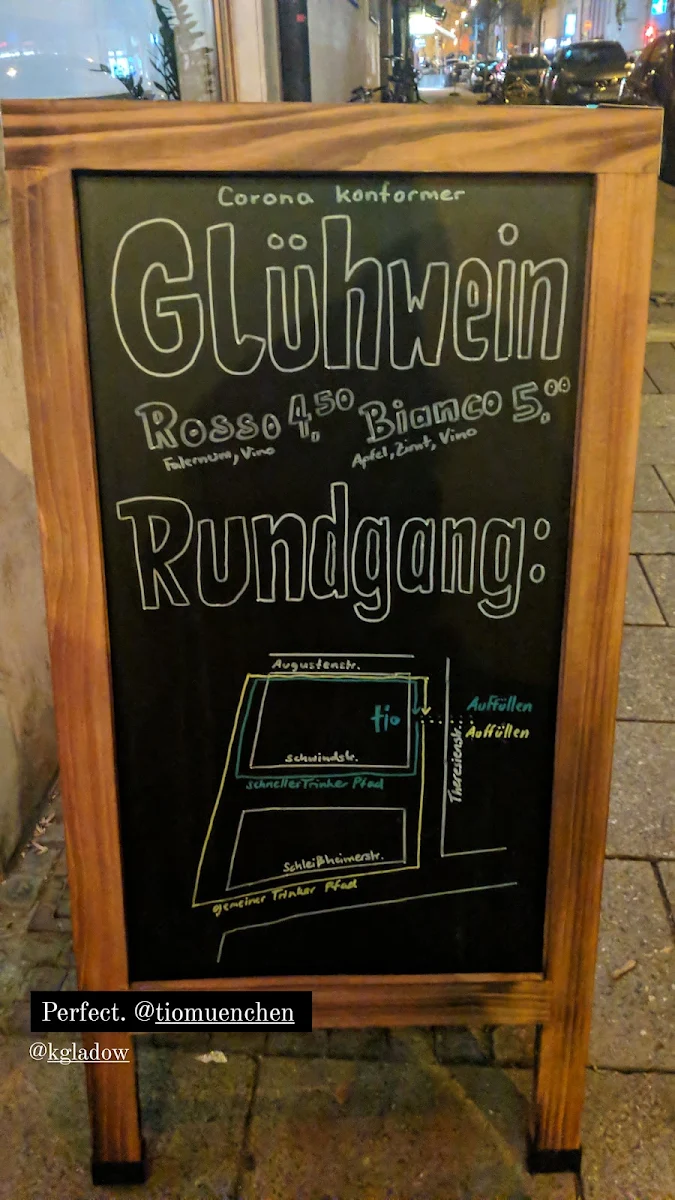 Corona konformer
Glühwein
Rosso 4,50 Bianco 5,00
Falernum, Vino Apfel, Zimt, Vino
Rundgang:
Augustenstr.
tio
Auffüllen
Auffüllen
Theresienstr.
Schwindstr.
schneller Trinker Pfad
Schleißheimerstr.
gemeiner Trinker Pfad
Perfect. @tiomuenchen
@kgladow